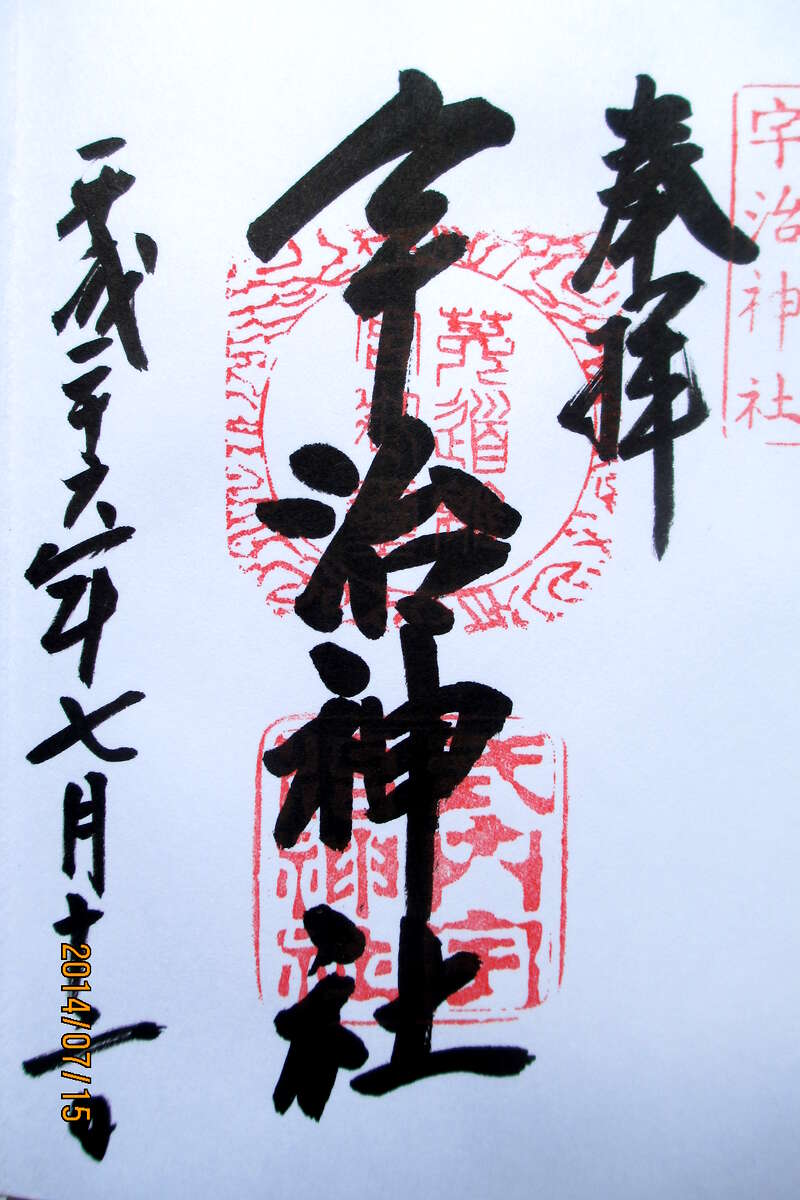 宇治神社
奉拝
宇治神社
平成二十六年七月十二日
2014/07/15